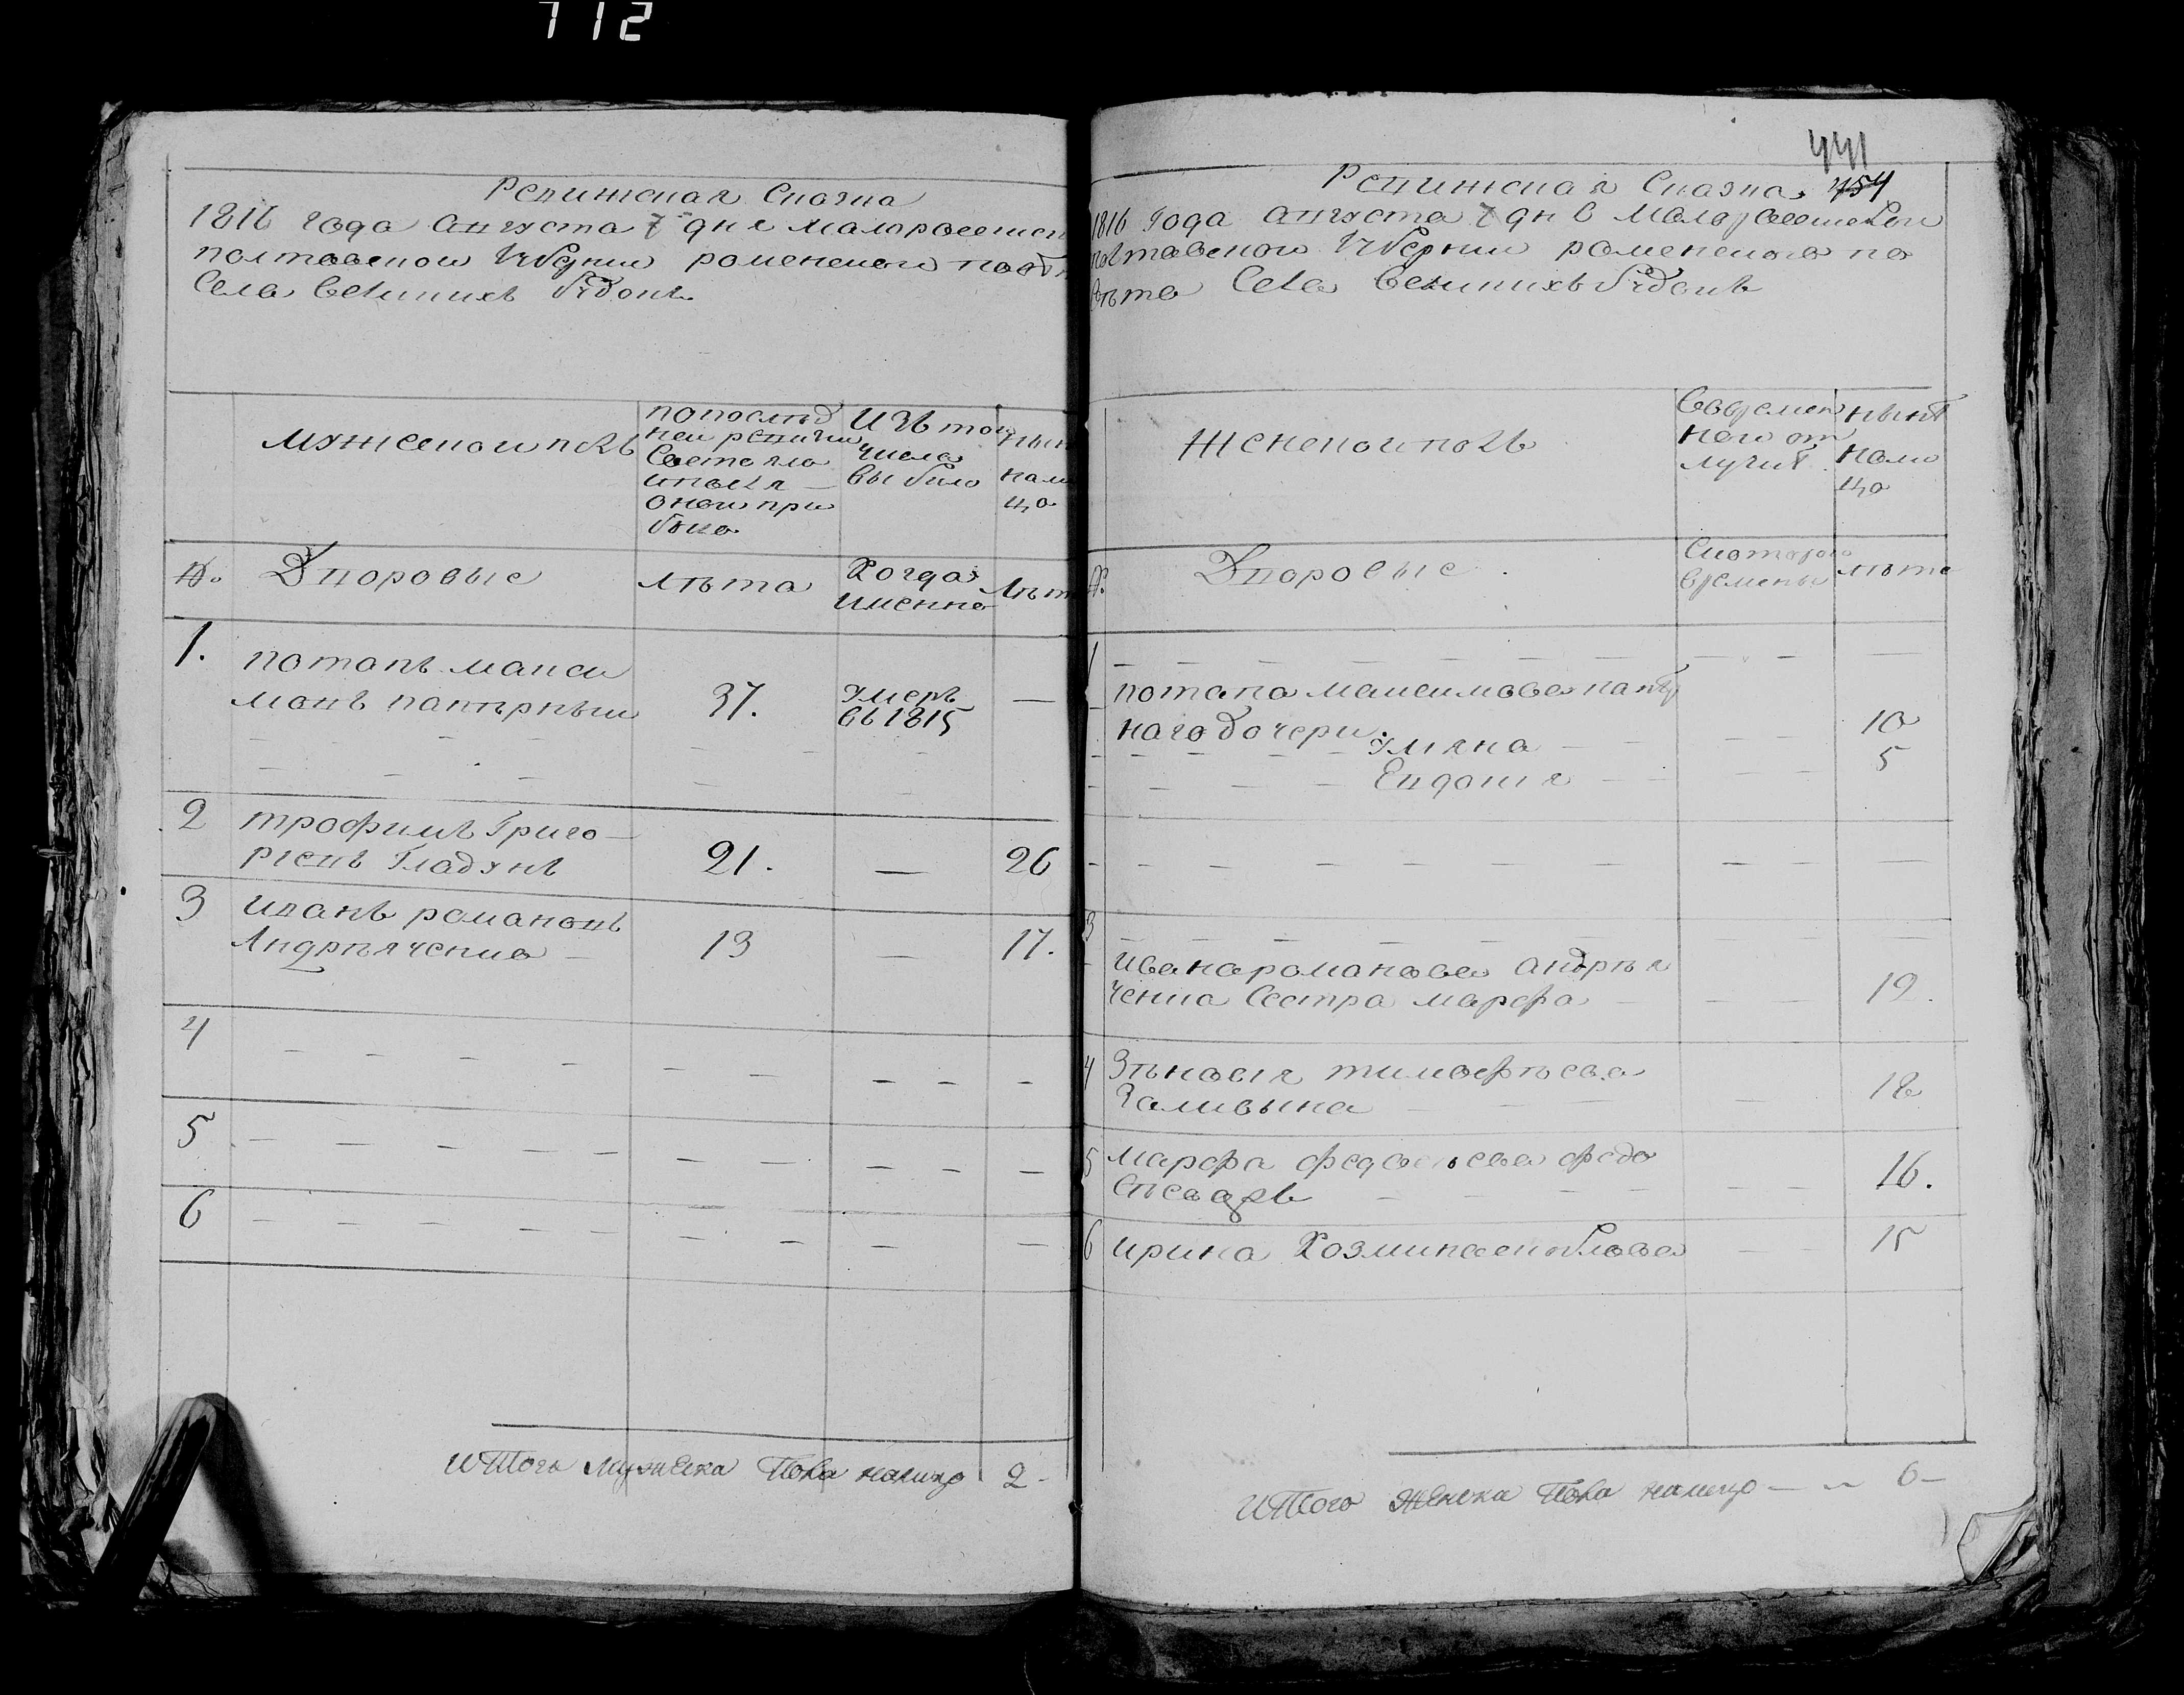 712
Ревижская Сказка
1816 года августа 7 дня малоросси
полтавской губернии роменского повѣ
Села великихъ будокъ
мужеской полъ
по послѣд
ней ревизии
состояло
и послѣ
оной при
было
Изъ того
числа
выбыло
нали
цо
№.
Дворовые
лѣта
Когда
именно
Лѣт
1.
потапъ макси
мовъ
37.
умеръ
въ 1815
—
2
трофимъ Григо
рьевъ Гладунъ
21.
—
26
3
иванъ романовъ
Андрѣяченко
13
—
17.
4
5
6
Итого мужска Пола налицо 2-
441
454
Ревижская Сказка
1816 года августа 7 дня Малороссийской
полтавской губернии роменского по
вѣта Села великихъ будокъ
Женской полъ
Во времен
ной от
лучкѣ
нынѣ
нали
цо
№
Дворовые
С которого
времены
лѣта
1
потапа максимова
наго дочери
Уляна
10
Евдокия
5
3
ивана романова андрѣя
ченка Сестра марфа
19.
4
Зѣновия тимофѣева
18
5
марфа
16.
6
ирина Козмина
15
Итого Женска Пола налицо 6-